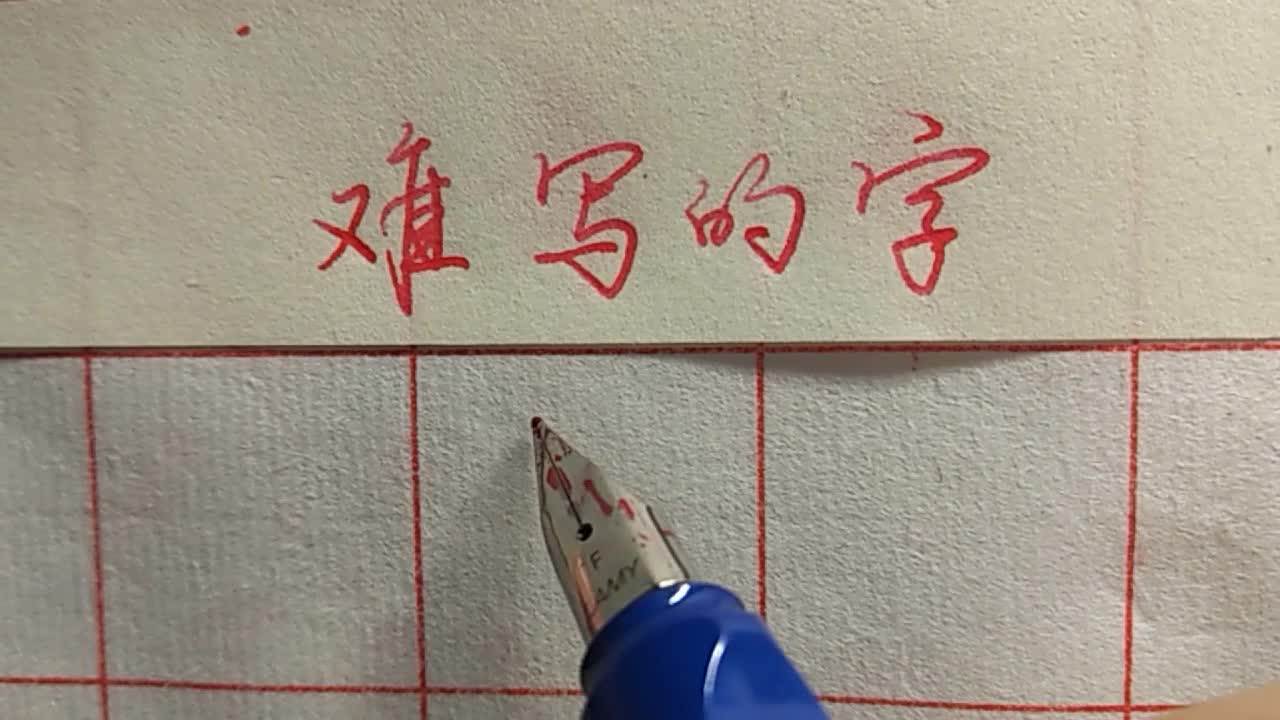 难写的字
F
LAMY